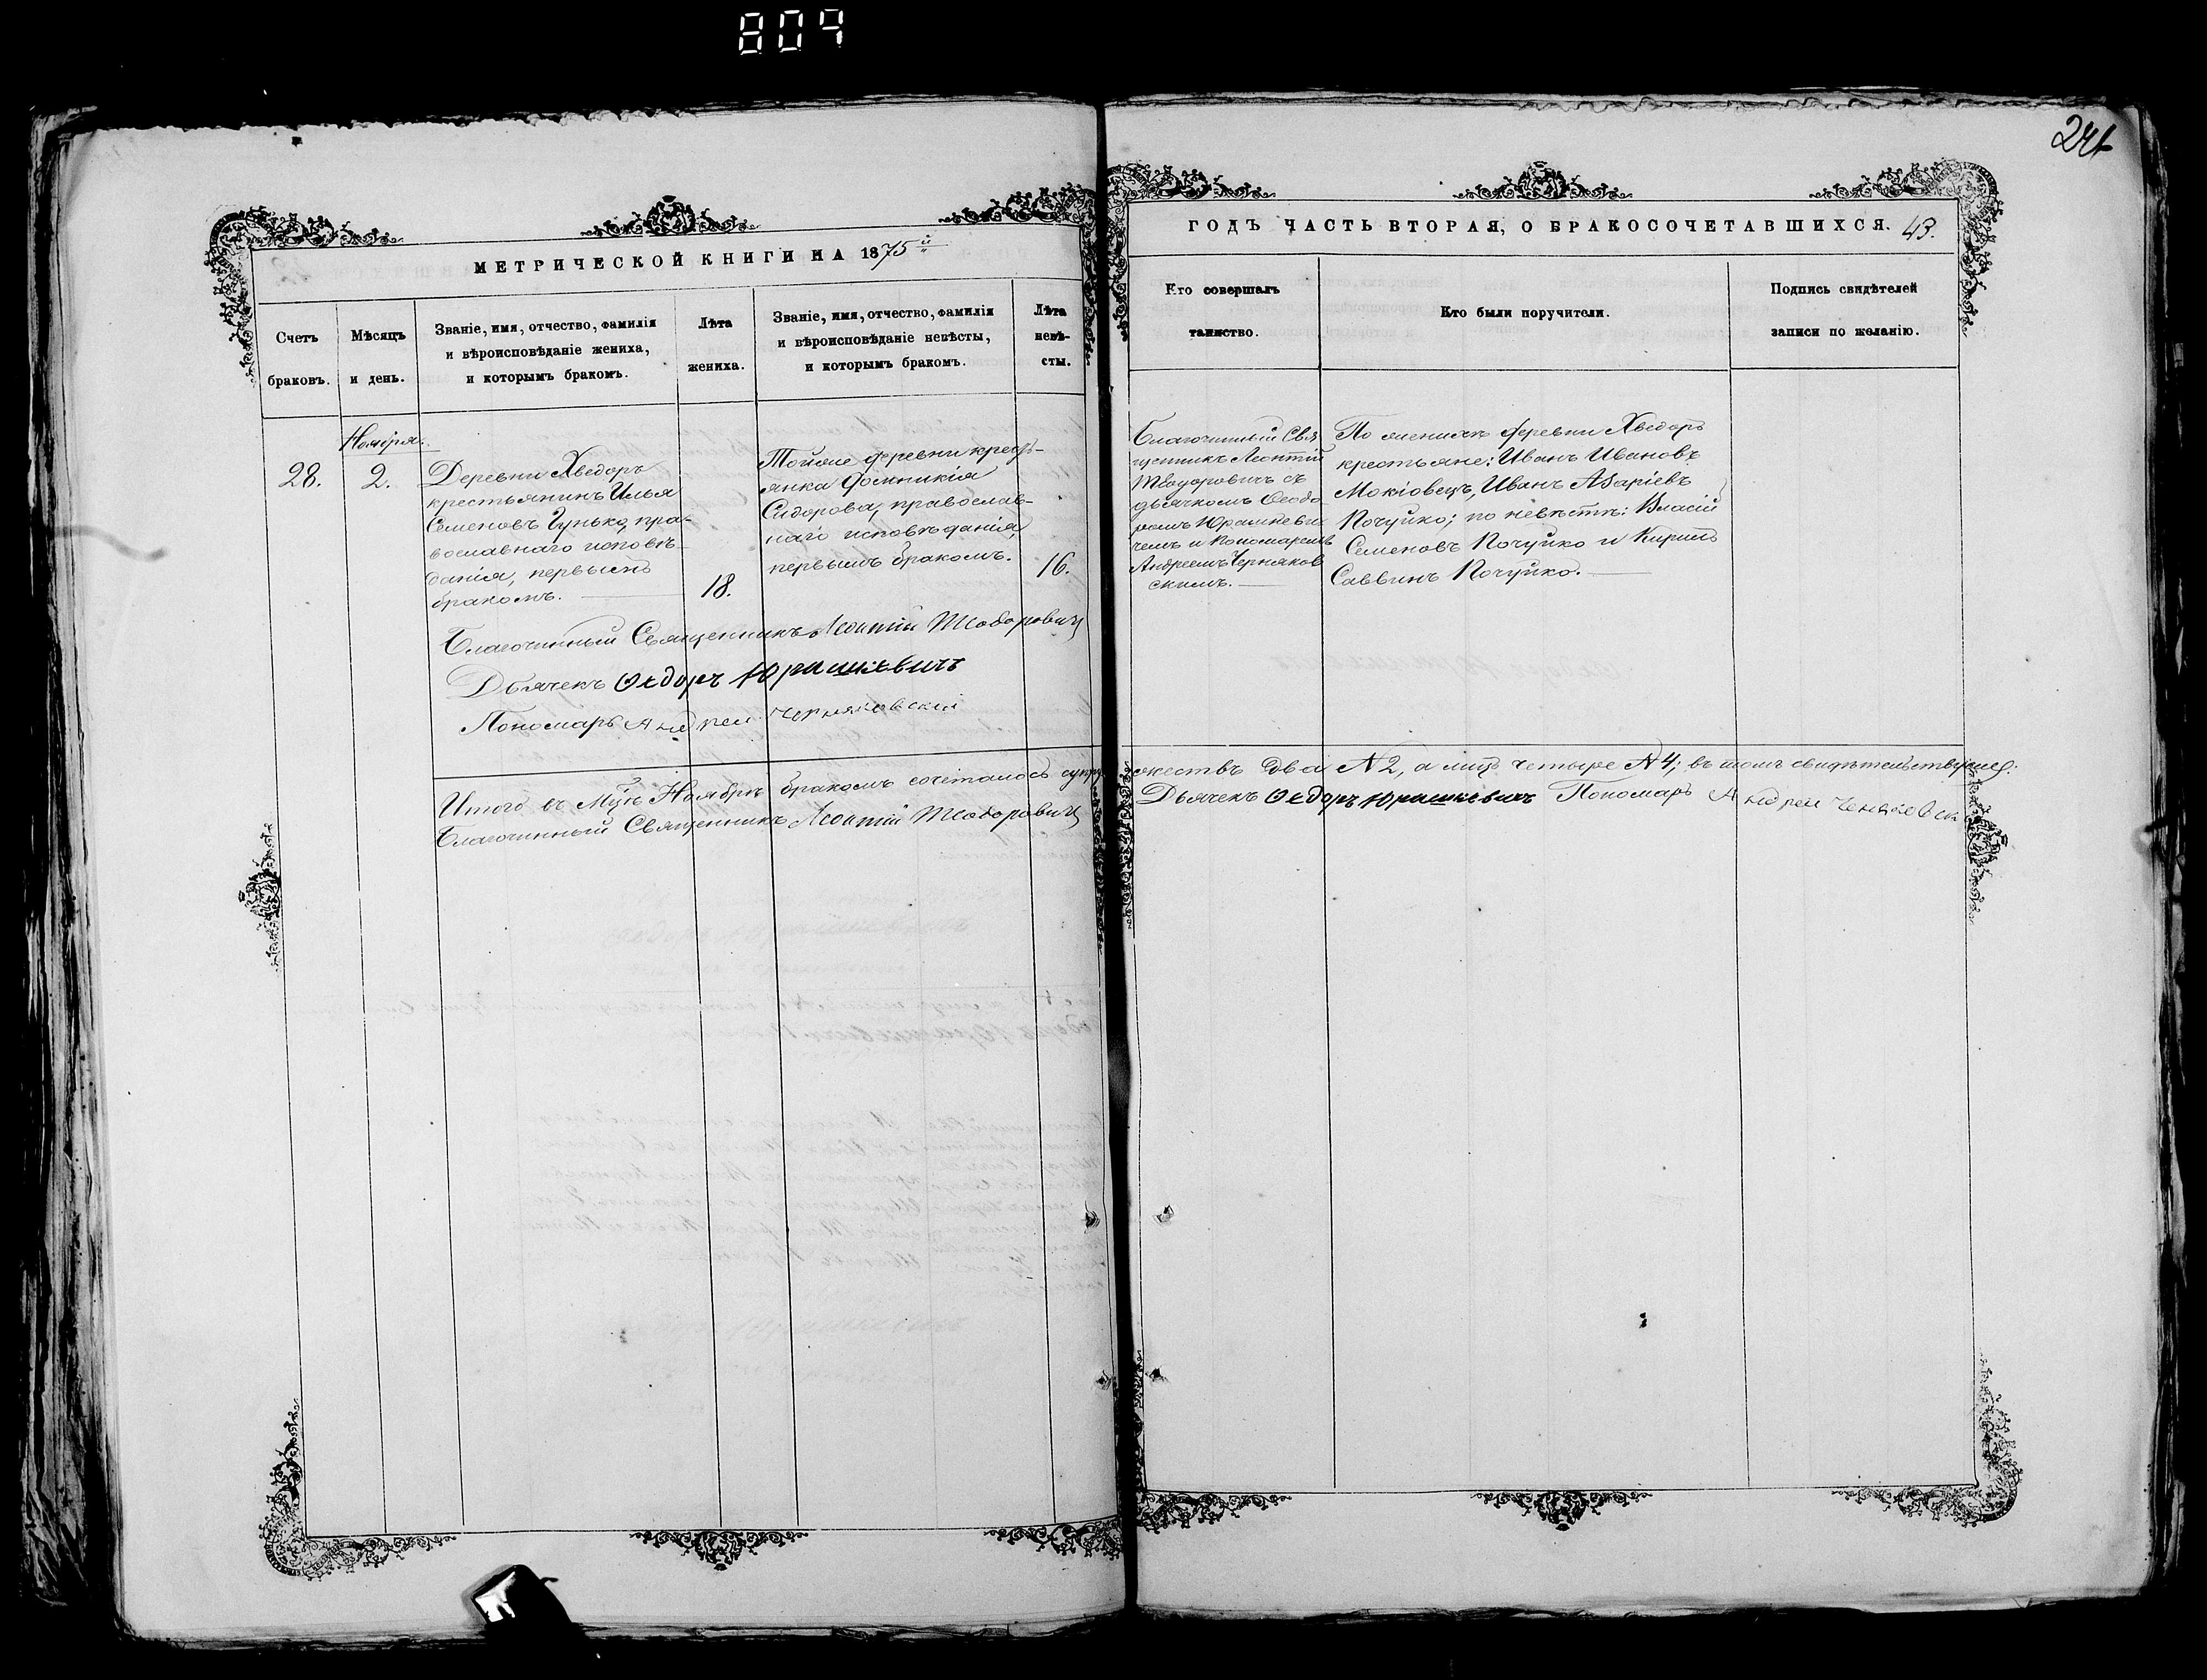 809
241
МЕТРИЧЕСКОЙ КНИГИ НА 1875й
ГОДЪ ЧАСТЬ ВТОРАЯ, О БРАКОСОЧЕТАВШИХСЯ. 43.
Счетъ
браковъ.
Мѣсяцъ
и день.
Званіе, имя, отчество, фамилія
и вѣроисповѣданіе жениха,
и которымъ бракомъ.
Лѣта
жениха.
Званіе, имя, отчество, фамилія
и вѣроисповѣданіе невѣсты,
и которымъ бракомъ.
Лѣта
невѣ-
сты.
Кто совершалъ
таинство.
Кто были поручители.
Подпись свидѣтелей
записи по желанію.
28.
Ноября.
2.
Деревни Хведоръ
крестьянинъ Илья
Семеновъ Гунько, пра-
вославнаго исповѣ-
данія, первымъ
бракомъ.
18.
Тойже деревни крест-
янка Домникія
Сидорова, православ-
наго исповѣданія,
первымъ бракомъ.
16.
Благочинный Свя
щенникъ Леонтій
Твадоровичъ съ
дьячкомъ Феодо
ромъ Юрашкеви
чемъ и Пономаремъ
Андреемъ Черняков
скимъ.
По женихѣ деревни Хведоръ
крестьяне: Иванъ Ивановъ
Мокіовецъ, Иванъ Азаріевъ
Почуйко; по невѣстѣ: Власій
Семеновъ Почуйко и Кирилъ
Саввинъ Почуйко.
Благочинный Священникъ Леонтій Теодоровичъ
Дьячекъ Ѳедоръ Юрашкевичъ
Пономарь Андрей Черняковскій
Итого въ Мцѣ Ноябрѣ бракомъ сочеталось супру жествъ два № 2, а лицъ четыре № 4; въ томъ свидѣтельствуемъ:
Благочинный Священникъ Леонтій Теодоровичъ Дьячекъ Ѳедоръ Юрашкевичъ Пономарь Андрей